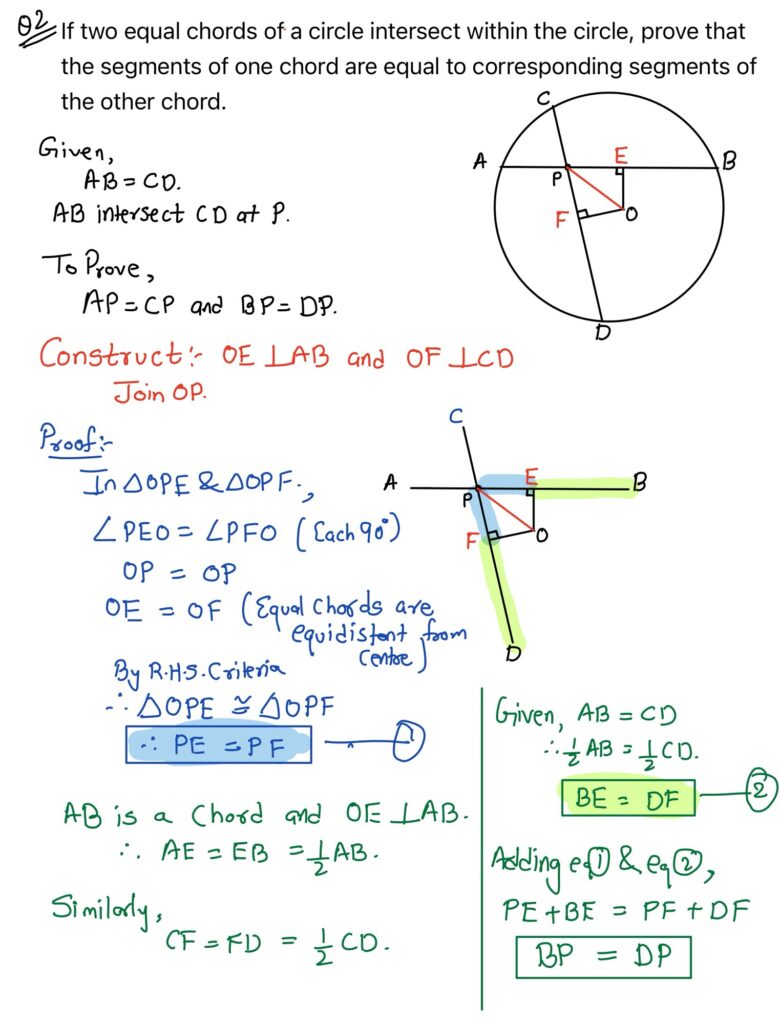 Q2
If two equal chords of a circle intersect within the circle, prove that
the segments of one chord are equal to corresponding segments of
the other chord.
C
A
E
B
P
F
O
D
Given,
AB = CD.
AB intersect CD at P.
To Prove,
AP = CP and BP = DP.
Construct:- OE ⊥AB and OF ⊥CD
Join OP.
Proof:-
In △OPE & △OPF.,
∠PEO = ∠PFO (Each 90°)
OP = OP
OE = OF (Equal chords are
equidistent from
Centre)
By R.H.S. Criteria
∴ △OPE ≅ △OPF
∴ PE = PF — 1
C
A
E
B
P
F
O
D
AB is a Chord and OE ⊥AB.
∴ AE = EB = 1/2 AB.
Similarly,
CF = FD = 1/2 CD.
Given, AB = CD
∴ 1/2 AB = 1/2 CD.
BE = DF — 2
Adding eq① & eq②,
PE + BE = PF + DF
BP = DP